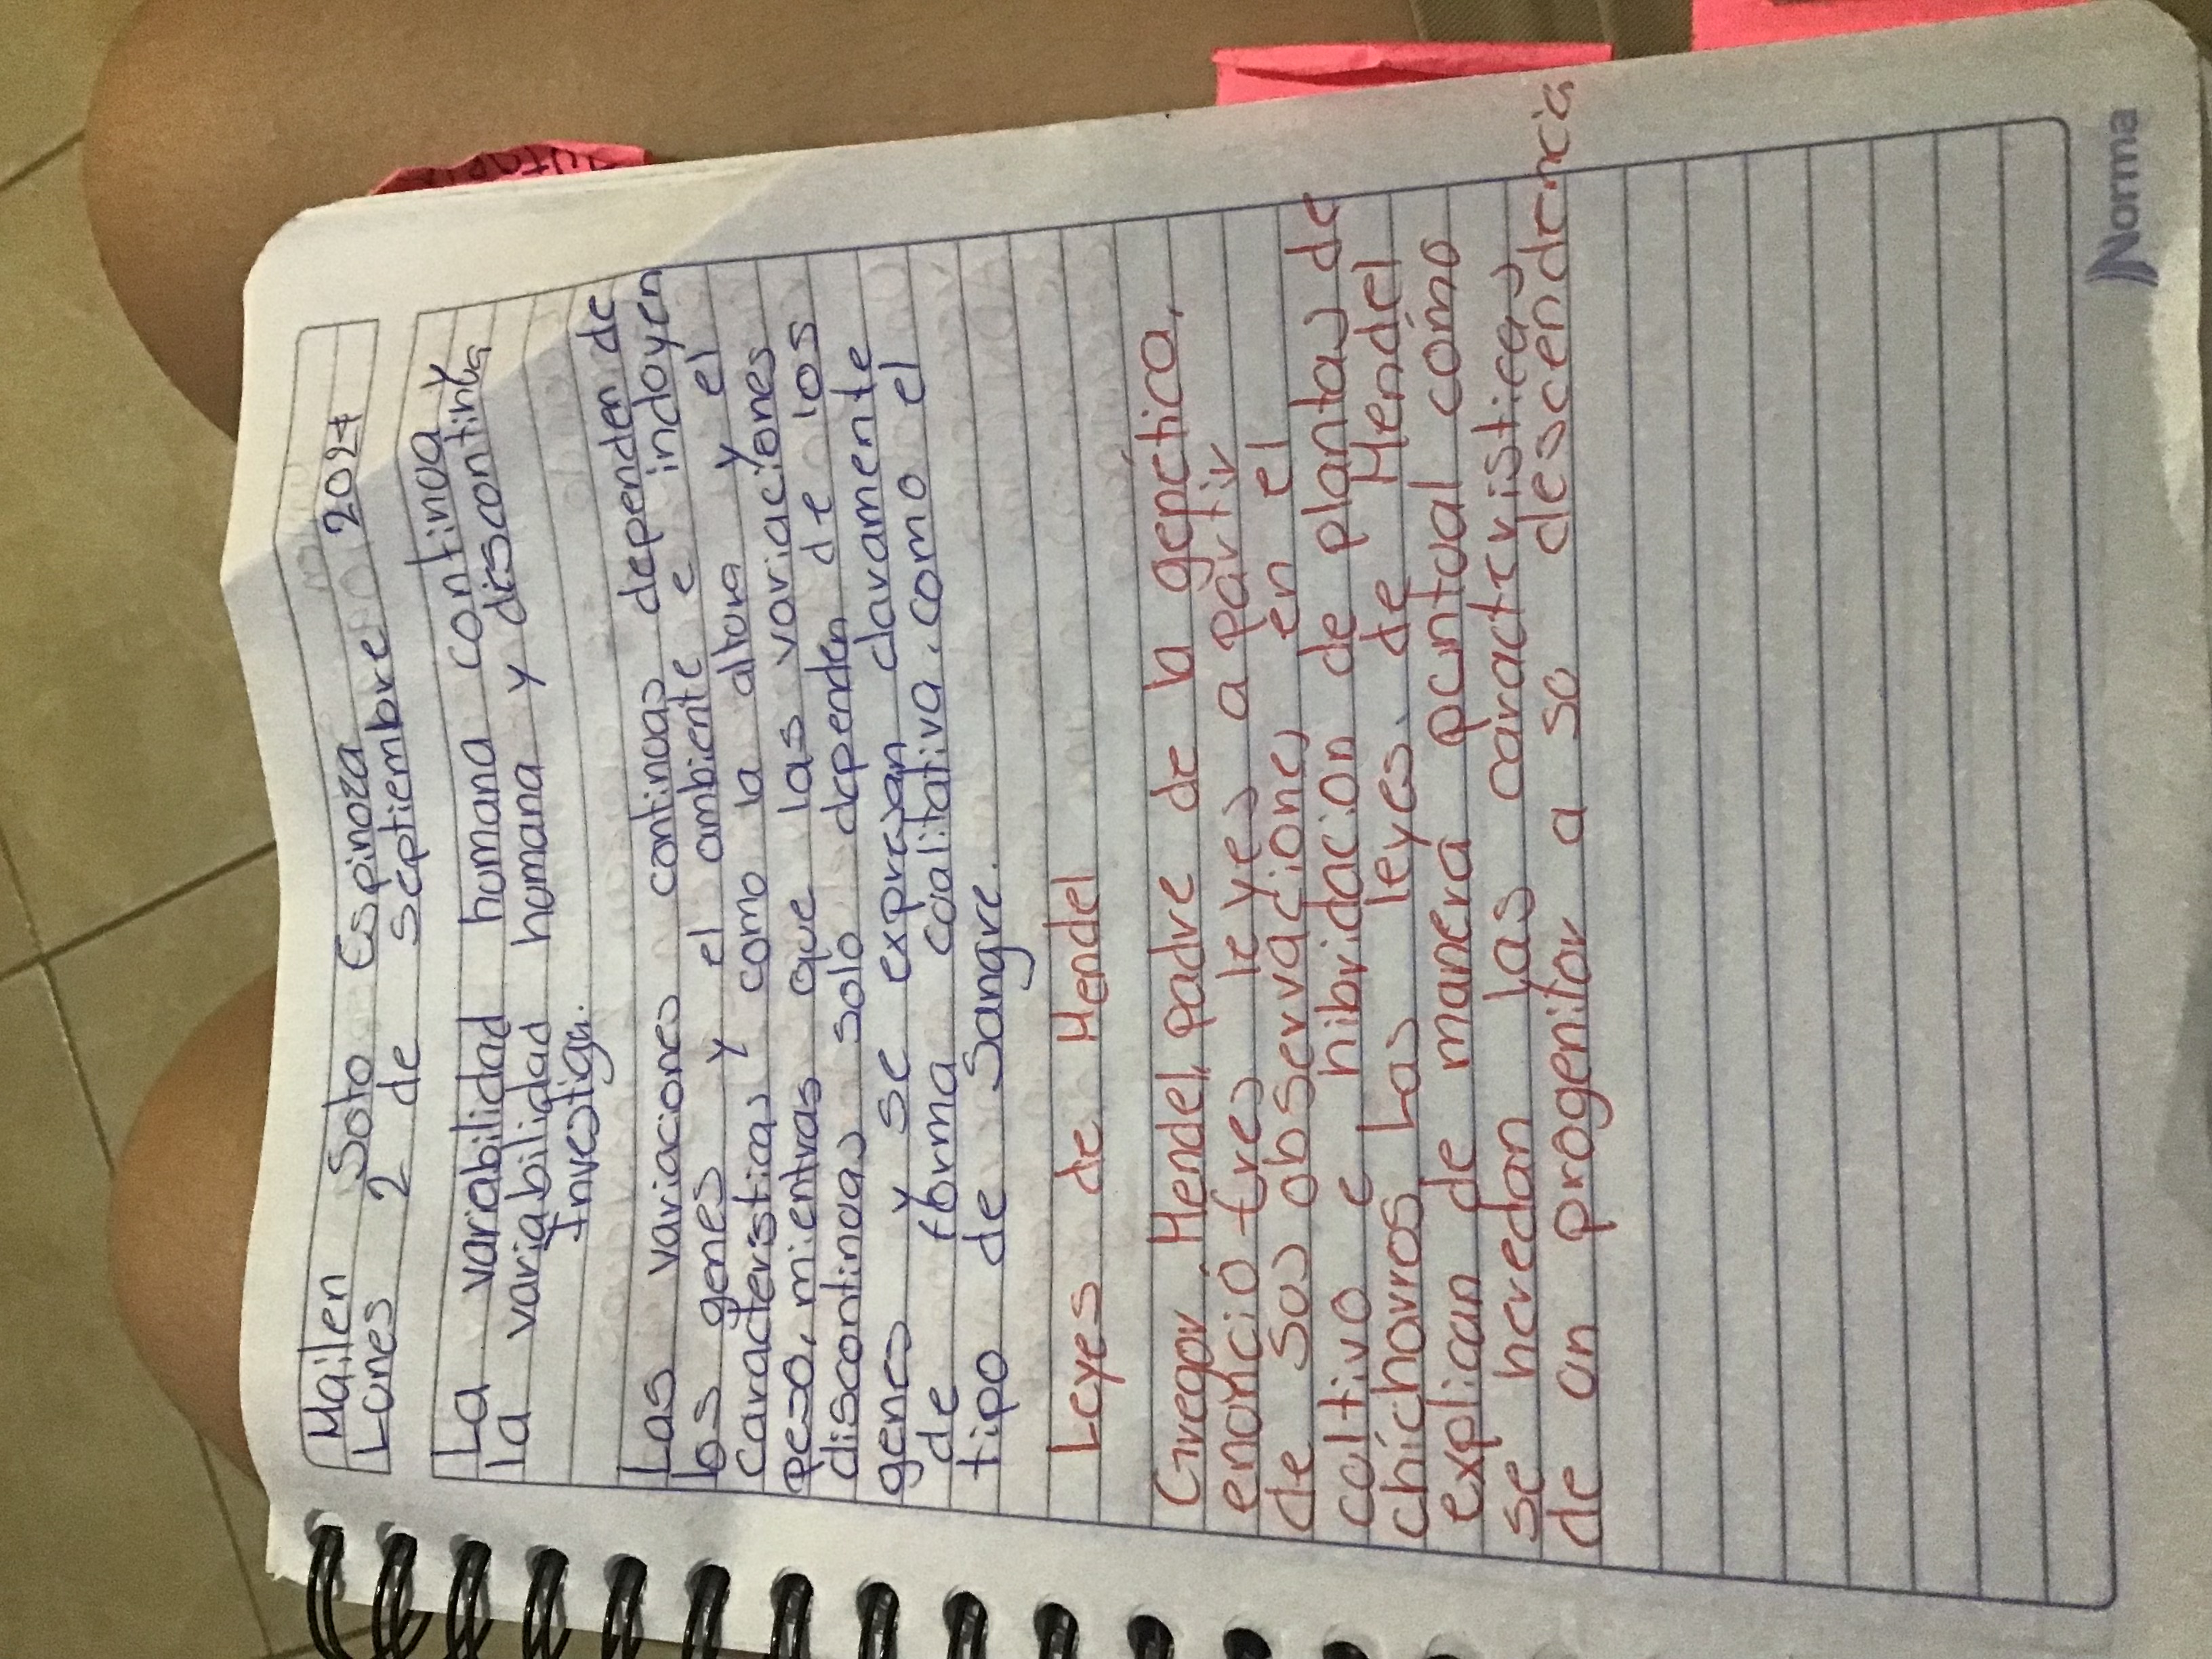 Mailen Soto Espinoza
Lunes 2 de septiembre 2024
La variabilidad humana continua y
la variabilidad humana y discontinua
Investigar.
Las variaciones continuas dependen de
los genes y el ambiente e induyen
caracteristicas como la altura y el
peso, mientras que las variaciones
discontinuas solo dependen de los
genes y se expresan claramente
de forma cualitativa, como el
tipo de sangre.
Leyes de Mendel
Gregor Mendel, padre de la genética,
enunció tres leyes a partir
de sus observaciones en el
cultivo e hibridacion de plantas de
chícharos Las leyes de Mendel
explican de manera puntual cómo
se heredan las caracteristicas
de un progenitor a su descendencia
Norma